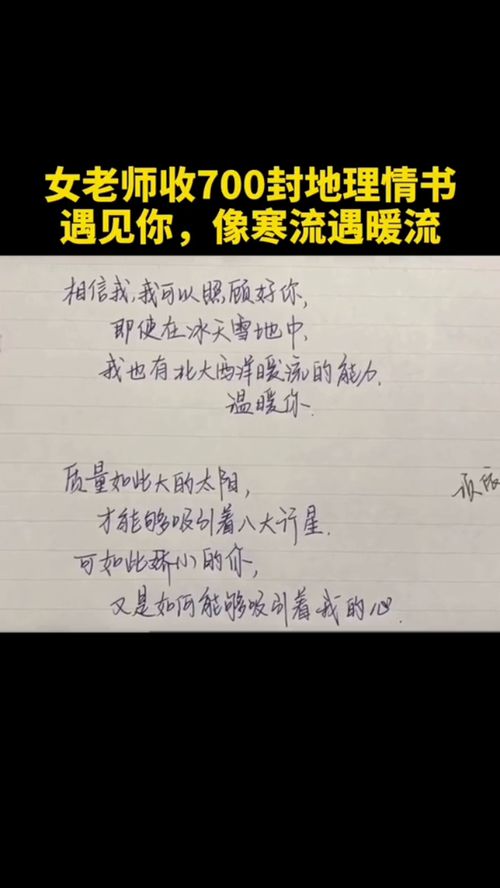 女老师收700封地理情书
遇见你，像寒流遇暖流
相信我,我可以照顾好你,
即使在冰天雪地中,
我也有北大西洋暖流的能力,
温暖你.
质量如此大的太阳,
才能够吸引着八大行星.
可如此娇小的你,
又是如何能够吸引着我的心.